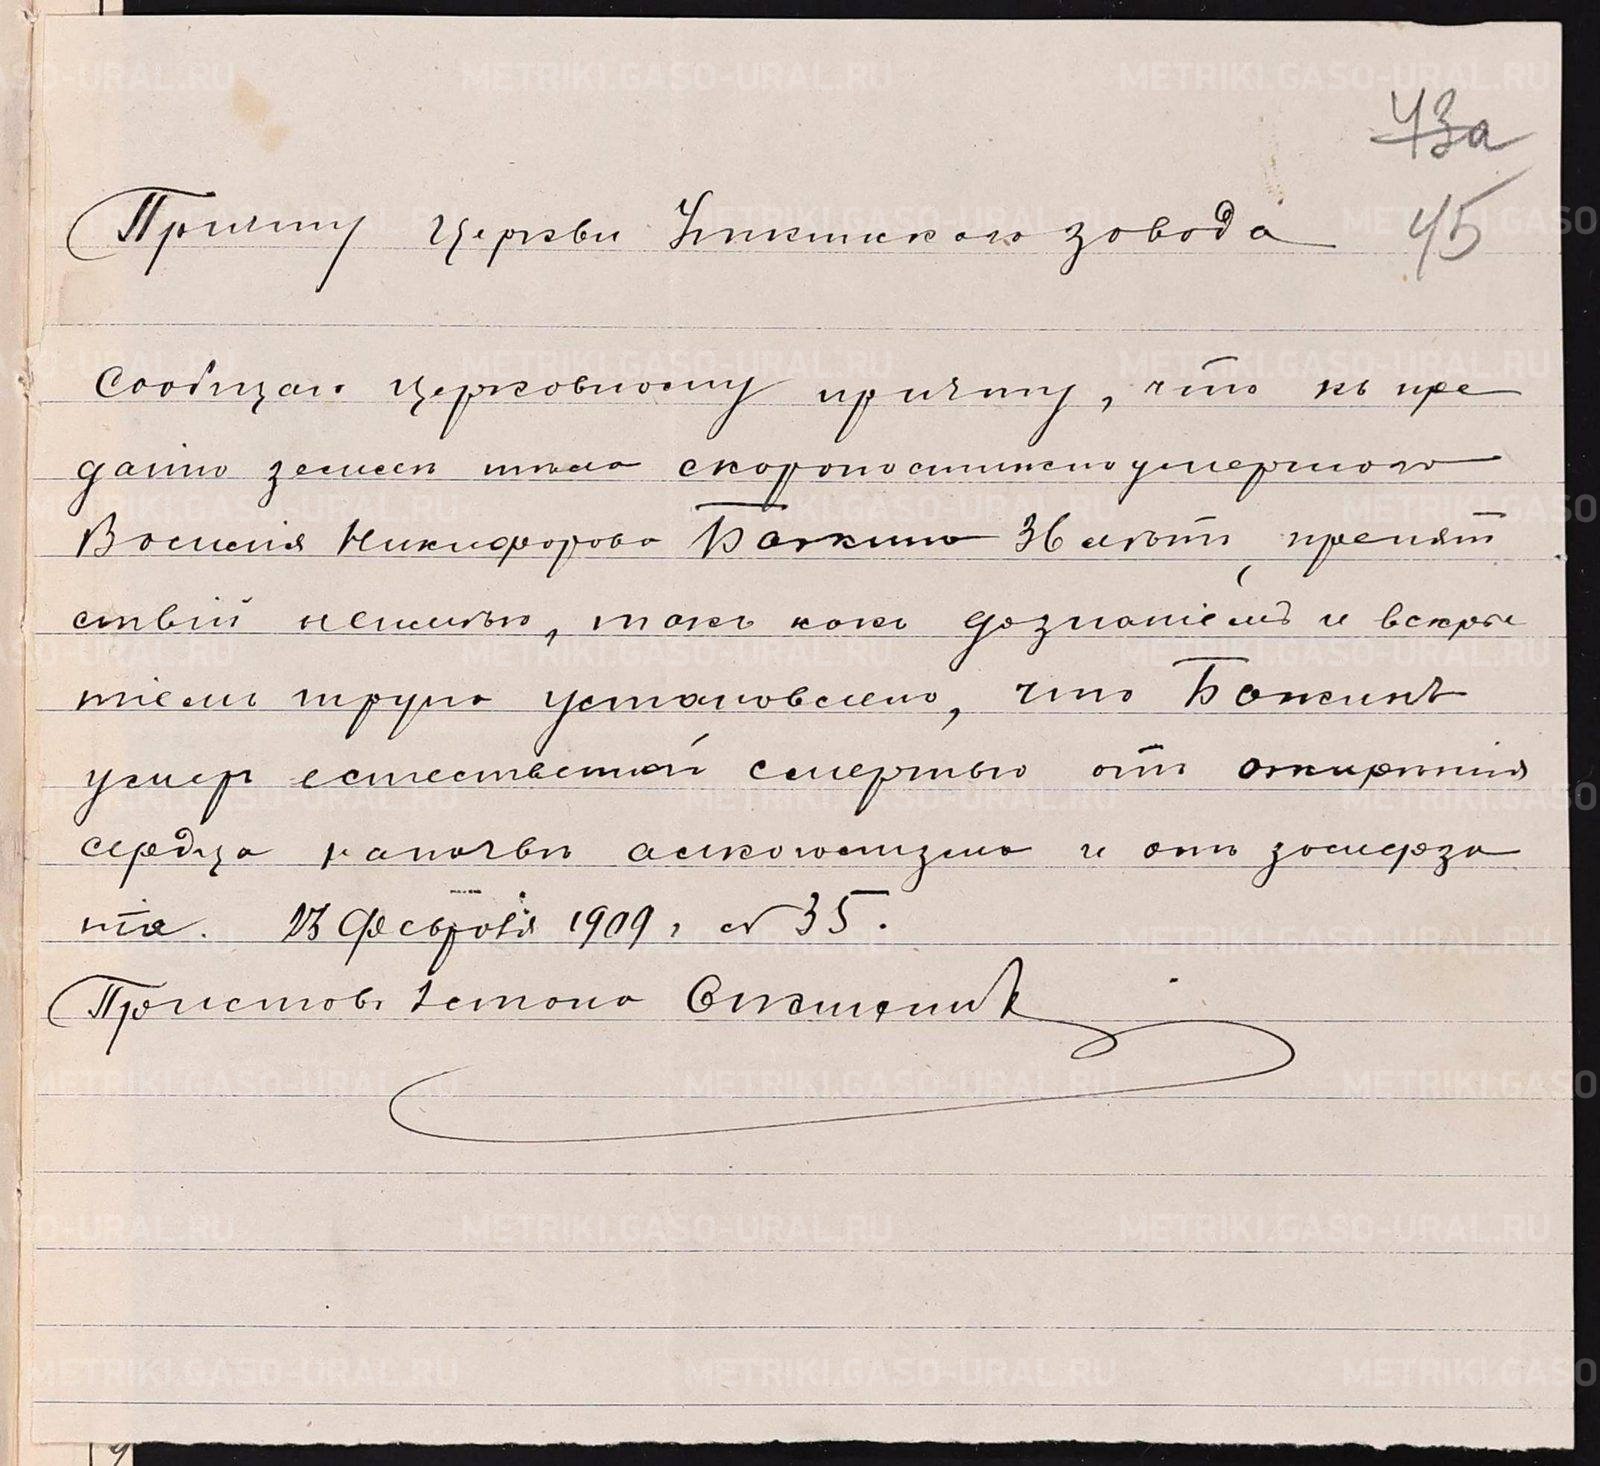 43а
Причту церкви Уткинскаго завода 45
Сообщаю церковному причту, что къ пре
данію землѣ тѣла скоропостижно умершаго
Василія Никифорова Бажина 36 лѣтъ, препят
ствій неимѣю, такъ какъ дознаніемъ и вскры
тіемъ трупа установлено, что Бажинъ
умеръ естественной смертью отъ ожирѣнія
сердца на почвѣ алкоголизма и отъ замерза
нія. 23 Февраля 1909 г. № 35.
Приставъ 1 стана
METRIKI.GASO-URAL.RU